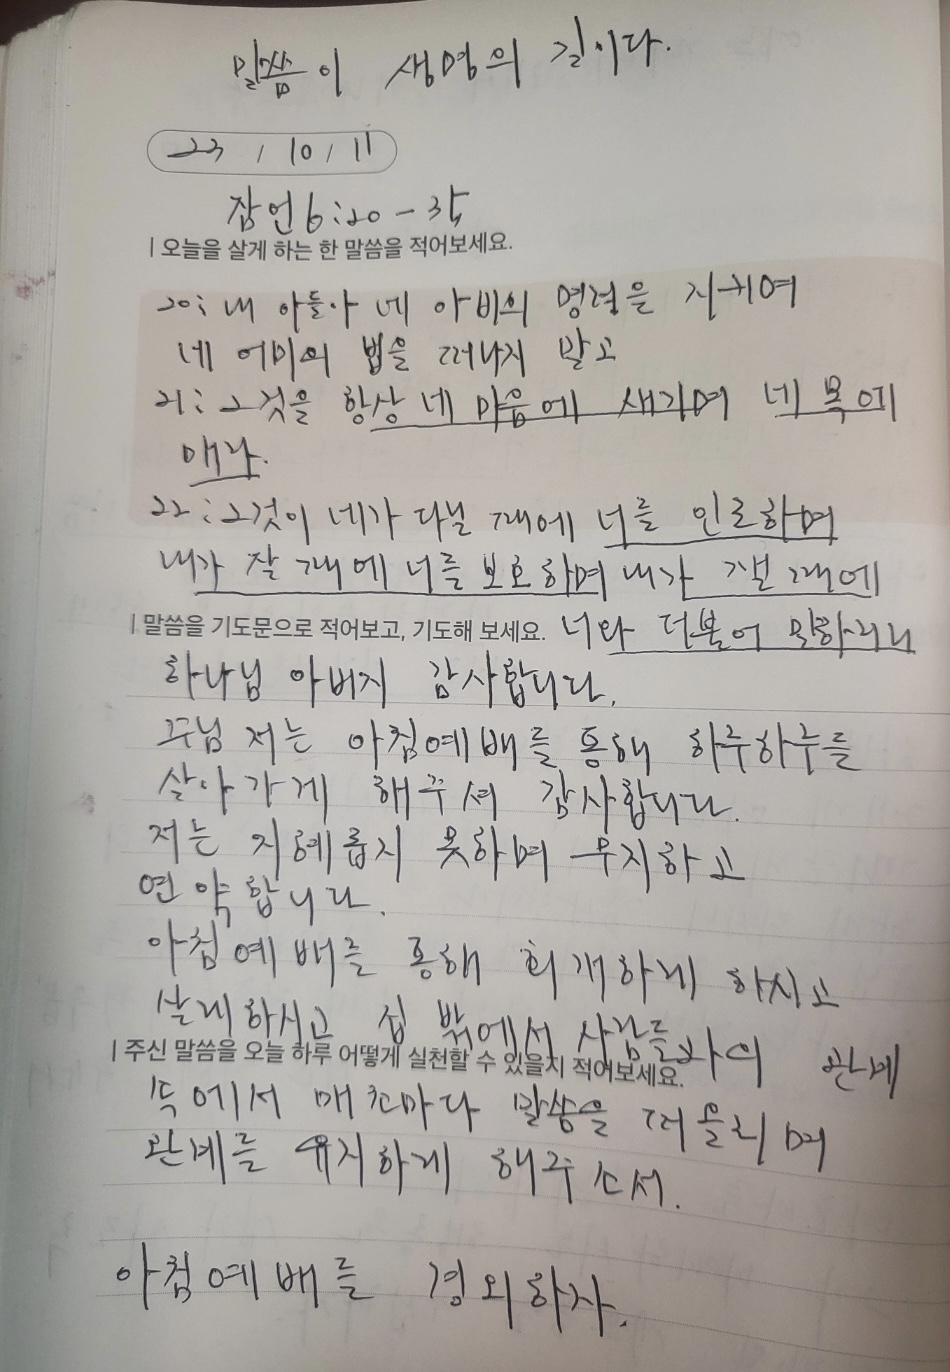 말씀이 생명의 길이다.
23 / 10 / 11
잠언 6:20-35
| 오늘을 살게 하는 한 말씀을 적어보세요.
20: 내 아들아 네 아비의 명령을 지키며
네 어미의 법을 떠나지 말고
21: 그것을 항상 네 마음에 새기며 네 목에
매라.
22: 그것이 네가 다닐 때에 너를 인도하며
네가 잘 때에 너를 보호하며 네가 깰 때에
너와 더불어 말하리니
| 말씀을 기도문으로 적어보고, 기도해 보세요.
하나님 아버지 감사합니다.
주님 저는 아침예배를 통해 하루하루를
살아가게 해주셔 감사합니다.
저는 지혜롭지 못하며 무지하고
연약합니다.
아침예배를 통해 회개하게 하시고
살게하시고 집 밖에서 사람들과의 관계
| 주신 말씀을 오늘 하루 어떻게 실천할 수 있을지 적어보세요.
속에서 매 초마다 말씀을 떠올리며
관계를 유지하게 해주소서.
아침예배를 경외하자.